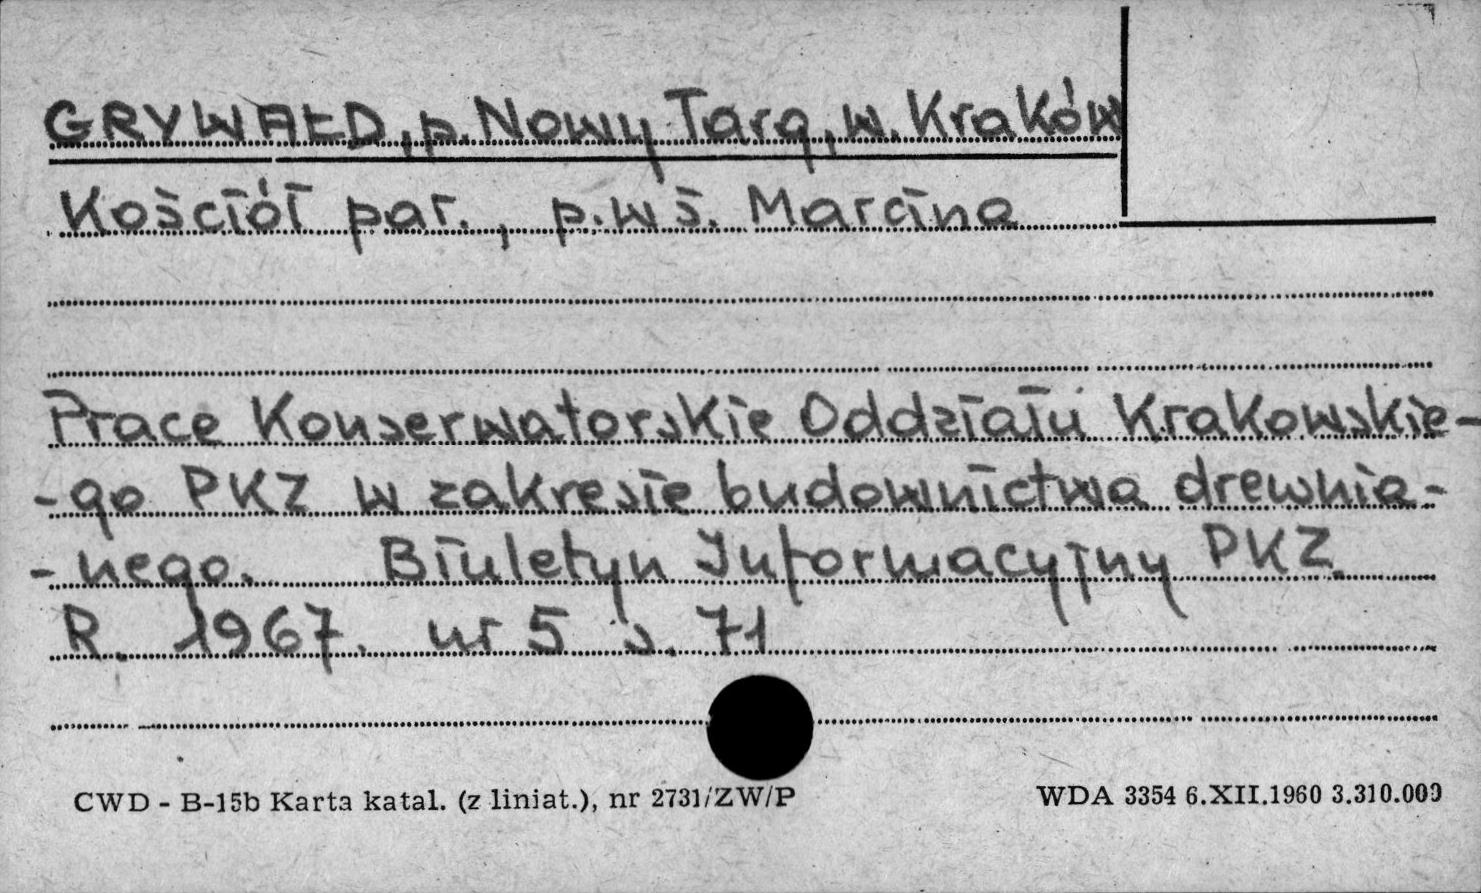 GRYWAŁD, p. Nowy Targ, w. Kraków
Kościół par., p.w ś. Marcina
Prace Konserwatorskie Oddziału Krakowskie-
-go PKZ w zakresie budownictwa drewnia-
-nego. Biuletyn Informacyjny PKZ
R. 1967. nr 5 s. 71
CWD - B-15b Karta katal. (z liniat.), nr 2731/ZW/P
WDA 3354 6.XII.1960 3.310.000